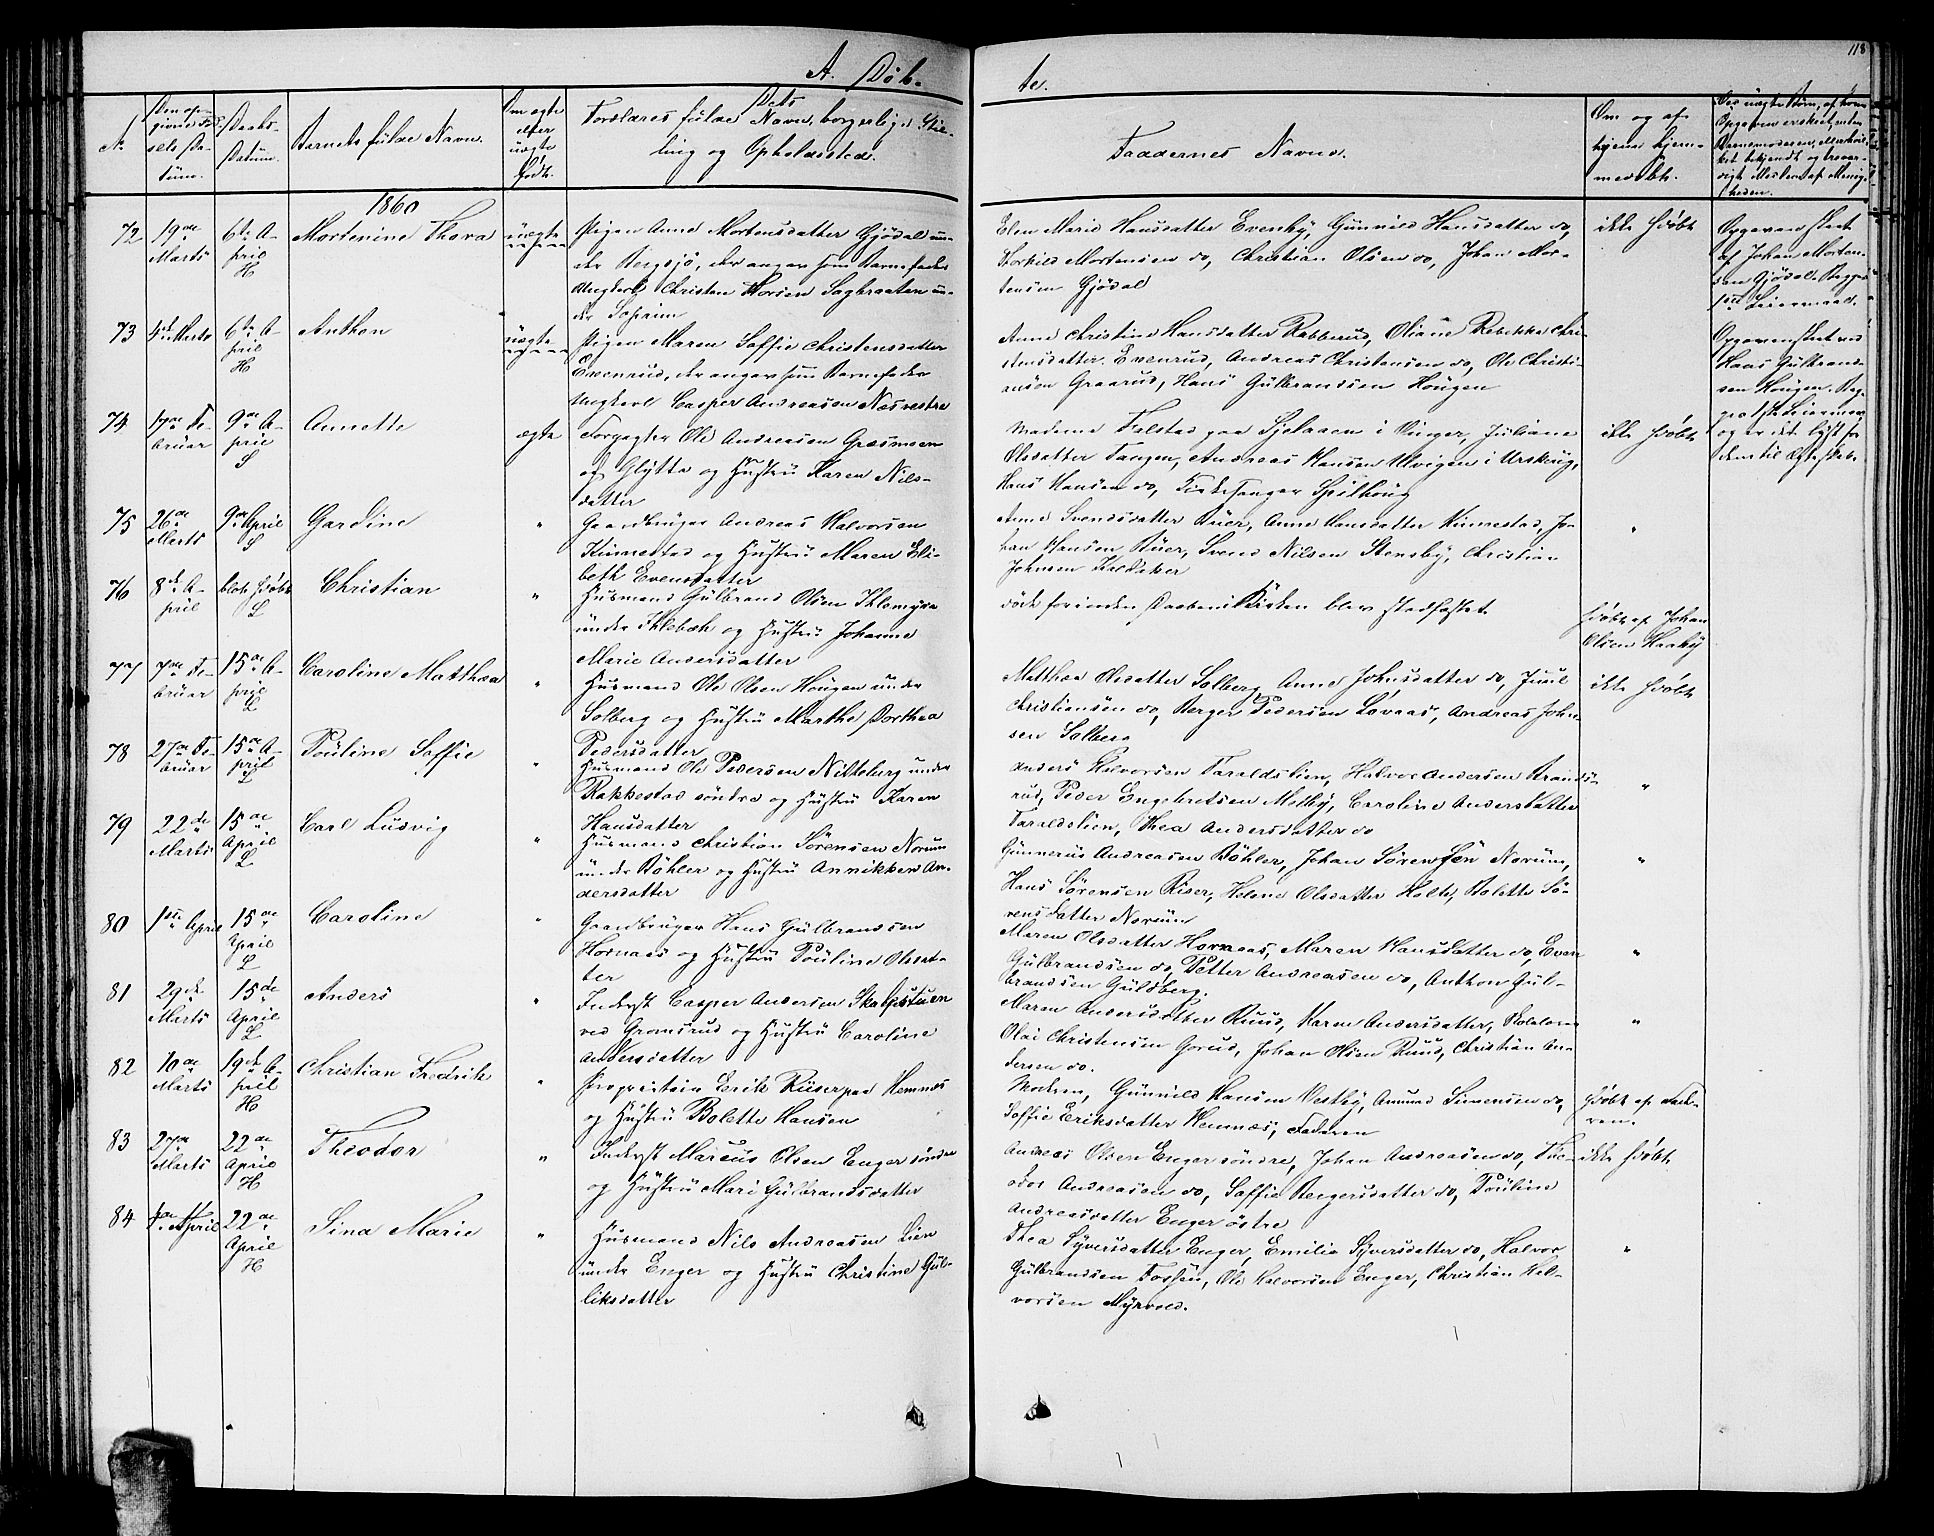 118
A. Døb-
te.
No.
Den op-
givne Fød-
sels Da-
tum.
Daabs-
Datum.
Barnets fulde Navn.
Om ægte
eller
uægte
født.
Forældres fulde Navn, borgerlige Stil-
ling og Opholdssted.
Faddernes Navne.
Om og af
hjem-
medøbt.
1860
72
19de
Marts
6te A-
pril
H
Mortenine Thora
uægte
Pigen Anne Mortensdatter Gjødal un-
der Bergsjø, der angav som Barnefader
Ungkarl Christen Thorsen Sagbraaten un-
der Sophrim
Elen Marie Hansdatter Evensby, Gunnild Hansdatter do,
Thorkild Mortensen do, Christian Olsen do, Johan Mor-
tensen Gjødal
ikke hjdøbt
Opgaven skeet
af Johan Morten-
sen Gjødal.
1ste Leiermaal.
73
4de Marts
6te A-
pril
H
Anthon
uægte
Pigen Maren Saffie Christensdatter
Evenrud, der angav som Barnefader
Ungkarl Casper Andreasen Næsvestre
Anne Christine Hansdatter Rabberud, Oliane Rebekka Chri-
stensdatter Evenrud, Andreas Christensen do, Ole Christi-
ansen Graarud, Hans Gulbrandsen Hougen
Opgaven skeet ved
Hans Gulbrand-
sen Hougen.
74
17de Fe-
bruar
9de A-
pril
S
Annette
ægte
Forpagter Ole Andreasen Græsmoen
af Glytte og Hustru Karen Nils-
datter
Madame Falstad paa Sjelaasen i Vinger, Juliane
Olsdatter Tangen, Andreas Hansen Ulvigen i Urskoug,
Hans Hansen do, Kirkesanger Spilhoug
ikke hjdøbt
75
26de
Marts
9de April
S
Gardine
"
Gaardbruger Andreas Halvorsen
Kinnestad og Hustru Maren Eli-
beth Evensdatter
Anne Svendsdatter Buer, Anne Hansdatter Kinnestad, Jo-
han Hansen Buer, Svend Nilsen Stensby, Christian
Johnsen
"
76
8de A-
pril
blot hjdøbt
L
Christian
"
Husmand Gulbrand Olsen Ihlemyra
under Ihlebæk og Hustru Johanne
Marie Andersdatter
døde forinden Daaben i Kirken blev stadfæstet
hjdøbt af Johan
Olsen Haaby
77
7de Fe-
bruar
15de A-
pril
L
Caroline Matthea
"
Husmand Ole Olsen Hougen under
Solberg og Hustru Marthe Dorthea
Pedersdatter
Matthea Olsdatter Solberg, Anne Johnsdatter do, Juul
Christiansen do, Berger Pedersen Løvaas, Andreas John-
sen Solberg
ikke hjdøbt
78
27de Fe-
bruar
15de A-
pril
L
Pouline Saffie
"
Husmand Ole Pedersen Nitteberg under
Rakkestad søndre og Hustru Karen
Hansdatter
Anders Halvorsen Taraldslien, Halvor Andersen Brands-
rud, Peder Engebretsen Melby, Caroline Andersdatter
Taraldslien, Thea Andersdatter do
"
79
22de
Marts
15de
April
L
Carl Ludvig
"
Husmand Christian Sørensen Norum
under Bøhler og Hustru Annikken An-
dersdatter
Gunnerus Andreasen Bøhler, Johan Sørensen Norum,
Hans Sørensen Riser, Helene Olsdatter Holt, Bolette Sø-
rensdatter Norum
"
80
1ste April
15de
April
L
Caroline
"
Gaardbruger Hans Gulbrandsen
Hornaas og Hustru Pouline Olsdat-
ter
Maren Olsdatter Hornaas, Maren Hansdatter do, Even
Gulbrandsen do, Petter Andreasen do, Anthon Gul-
brandsen Guldberg.
"
81
29de
Marts
15de
April
L
Anders
"
Inderst Casper Andersen Skalpstuen
ved Gromsrud og Hustru Caroline
Andersdatter
Maren Andersdatter Ruud, Karen Andersdatter,
Olai Christensen Gorud, Johan Olsen Ruud, Christian An-
dersen do.
"
82
10de
Marts
19de A-
pril
H
Christian Fredrik
"
Proprietair Erik Riiser paa Hemnes
og Hustru Bolette Hansen
Moderen, Gunnild Hansen Vestby, Amund Simensen do,
Saffie Eriksdatter Hemnæs, Faderen
hjdøbt af Fade-
ren.
83
27de
Marts
22de
April
H
Theodor
"
Inderst Marcus Olsen Enger søndre
og Hustru Mari Gulbrandsdatter
Andreas Olsen Enger søndre, Johan Andreasen do, The-
odor Andreasen do, Saffie Bergersdatter do, Pouline
Andreasdatter Enger østre
ikke hjdøbt
84
4de April
22de
April
H
Sina Marie
"
Husmand Nils Andreasen Lien
under Enger og Hustru Christine Gul-
liksdatter
Thea Syversdatter Enger, Emilie Syversdatter do, Halvor
Gulbrandsen Fossen, Ole Halvorsen Enger, Christian Hal-
vorsen Myrvold.
"